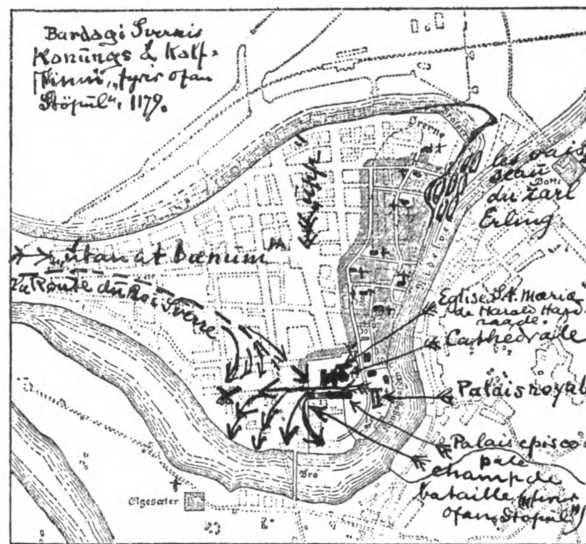 Bardagi Sverris
Konungs á Kalf-
skinni, "fyris ofan
Stöpul", 1179.
Ørerne
les vais
seau
du Earl
Erling
Batti
"útan at bœnum"
La Route du Roi Sverre
Eglise St. Maria
de Harald Hard
raade.
Cathedrale
Palais royal
Palais episco
pale
champ de
bataille "firir
ofan Stöpul"
Bro
Elgesæter